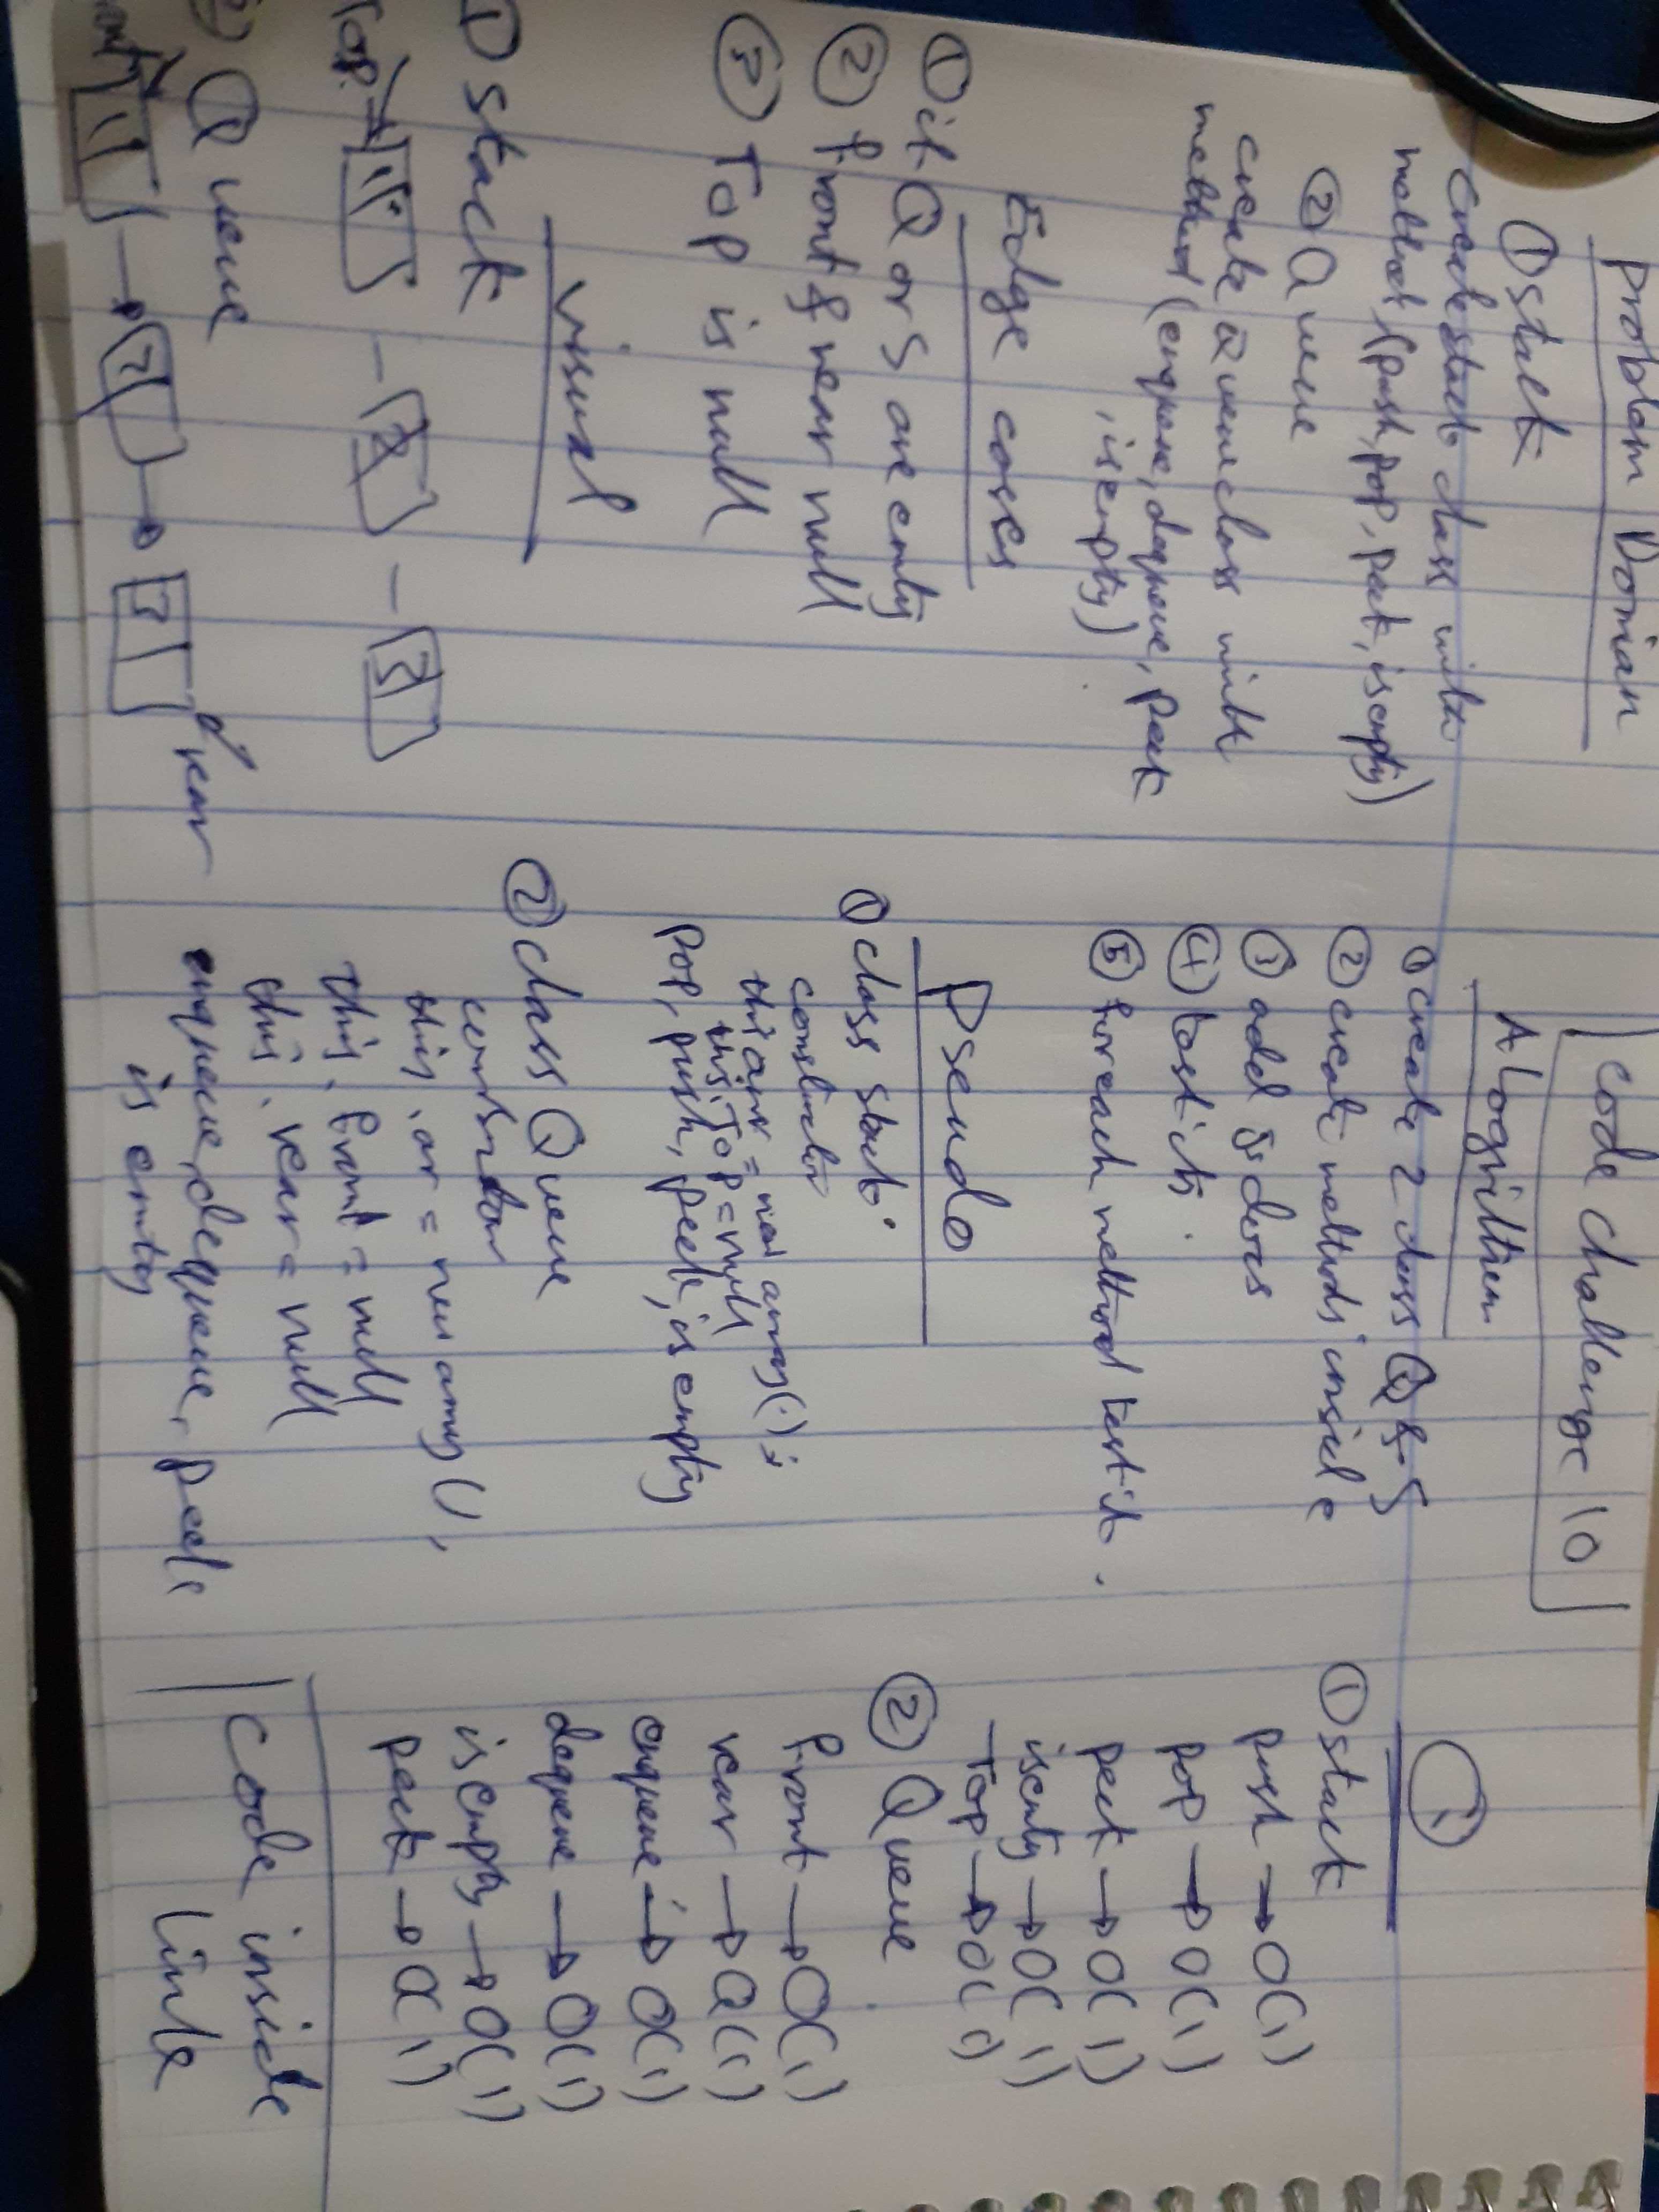 Code challenge 10
Problem Domian
① stack
create stack class with
method (push, pop, peek, isempty)
② Queue
create Queue class with
method (enqueue, dequeue, peek
, isempty)
Edge cases
① if Q or S are emty
② front & rear null
③ Top is null
visual
① stack
Top
1
2
3
② Queue
front
1
2
3
rear
Alogrithem
① create 2 class Q & S
② create methods inside
③ add js docs
④ test it.
⑤ for each method test it.
Pseudo
① class stack
constructor
this.arr = new array();
this.Top = null
pop, push, peek, is empty
② class Queue
this.arr = new array(),
this.front = null
this.rear = null
enqueue, dequeue, peek
is emty
①
① stack
push → O(1)
pop → O(1)
peek → O(1)
isemty → O(1)
Top → O(1)
② Queue
front → O(1)
rear → O(1)
enqueue → O(1)
dequeue → O(1)
is empty → O(1)
peek → O(1)
Code inside
link